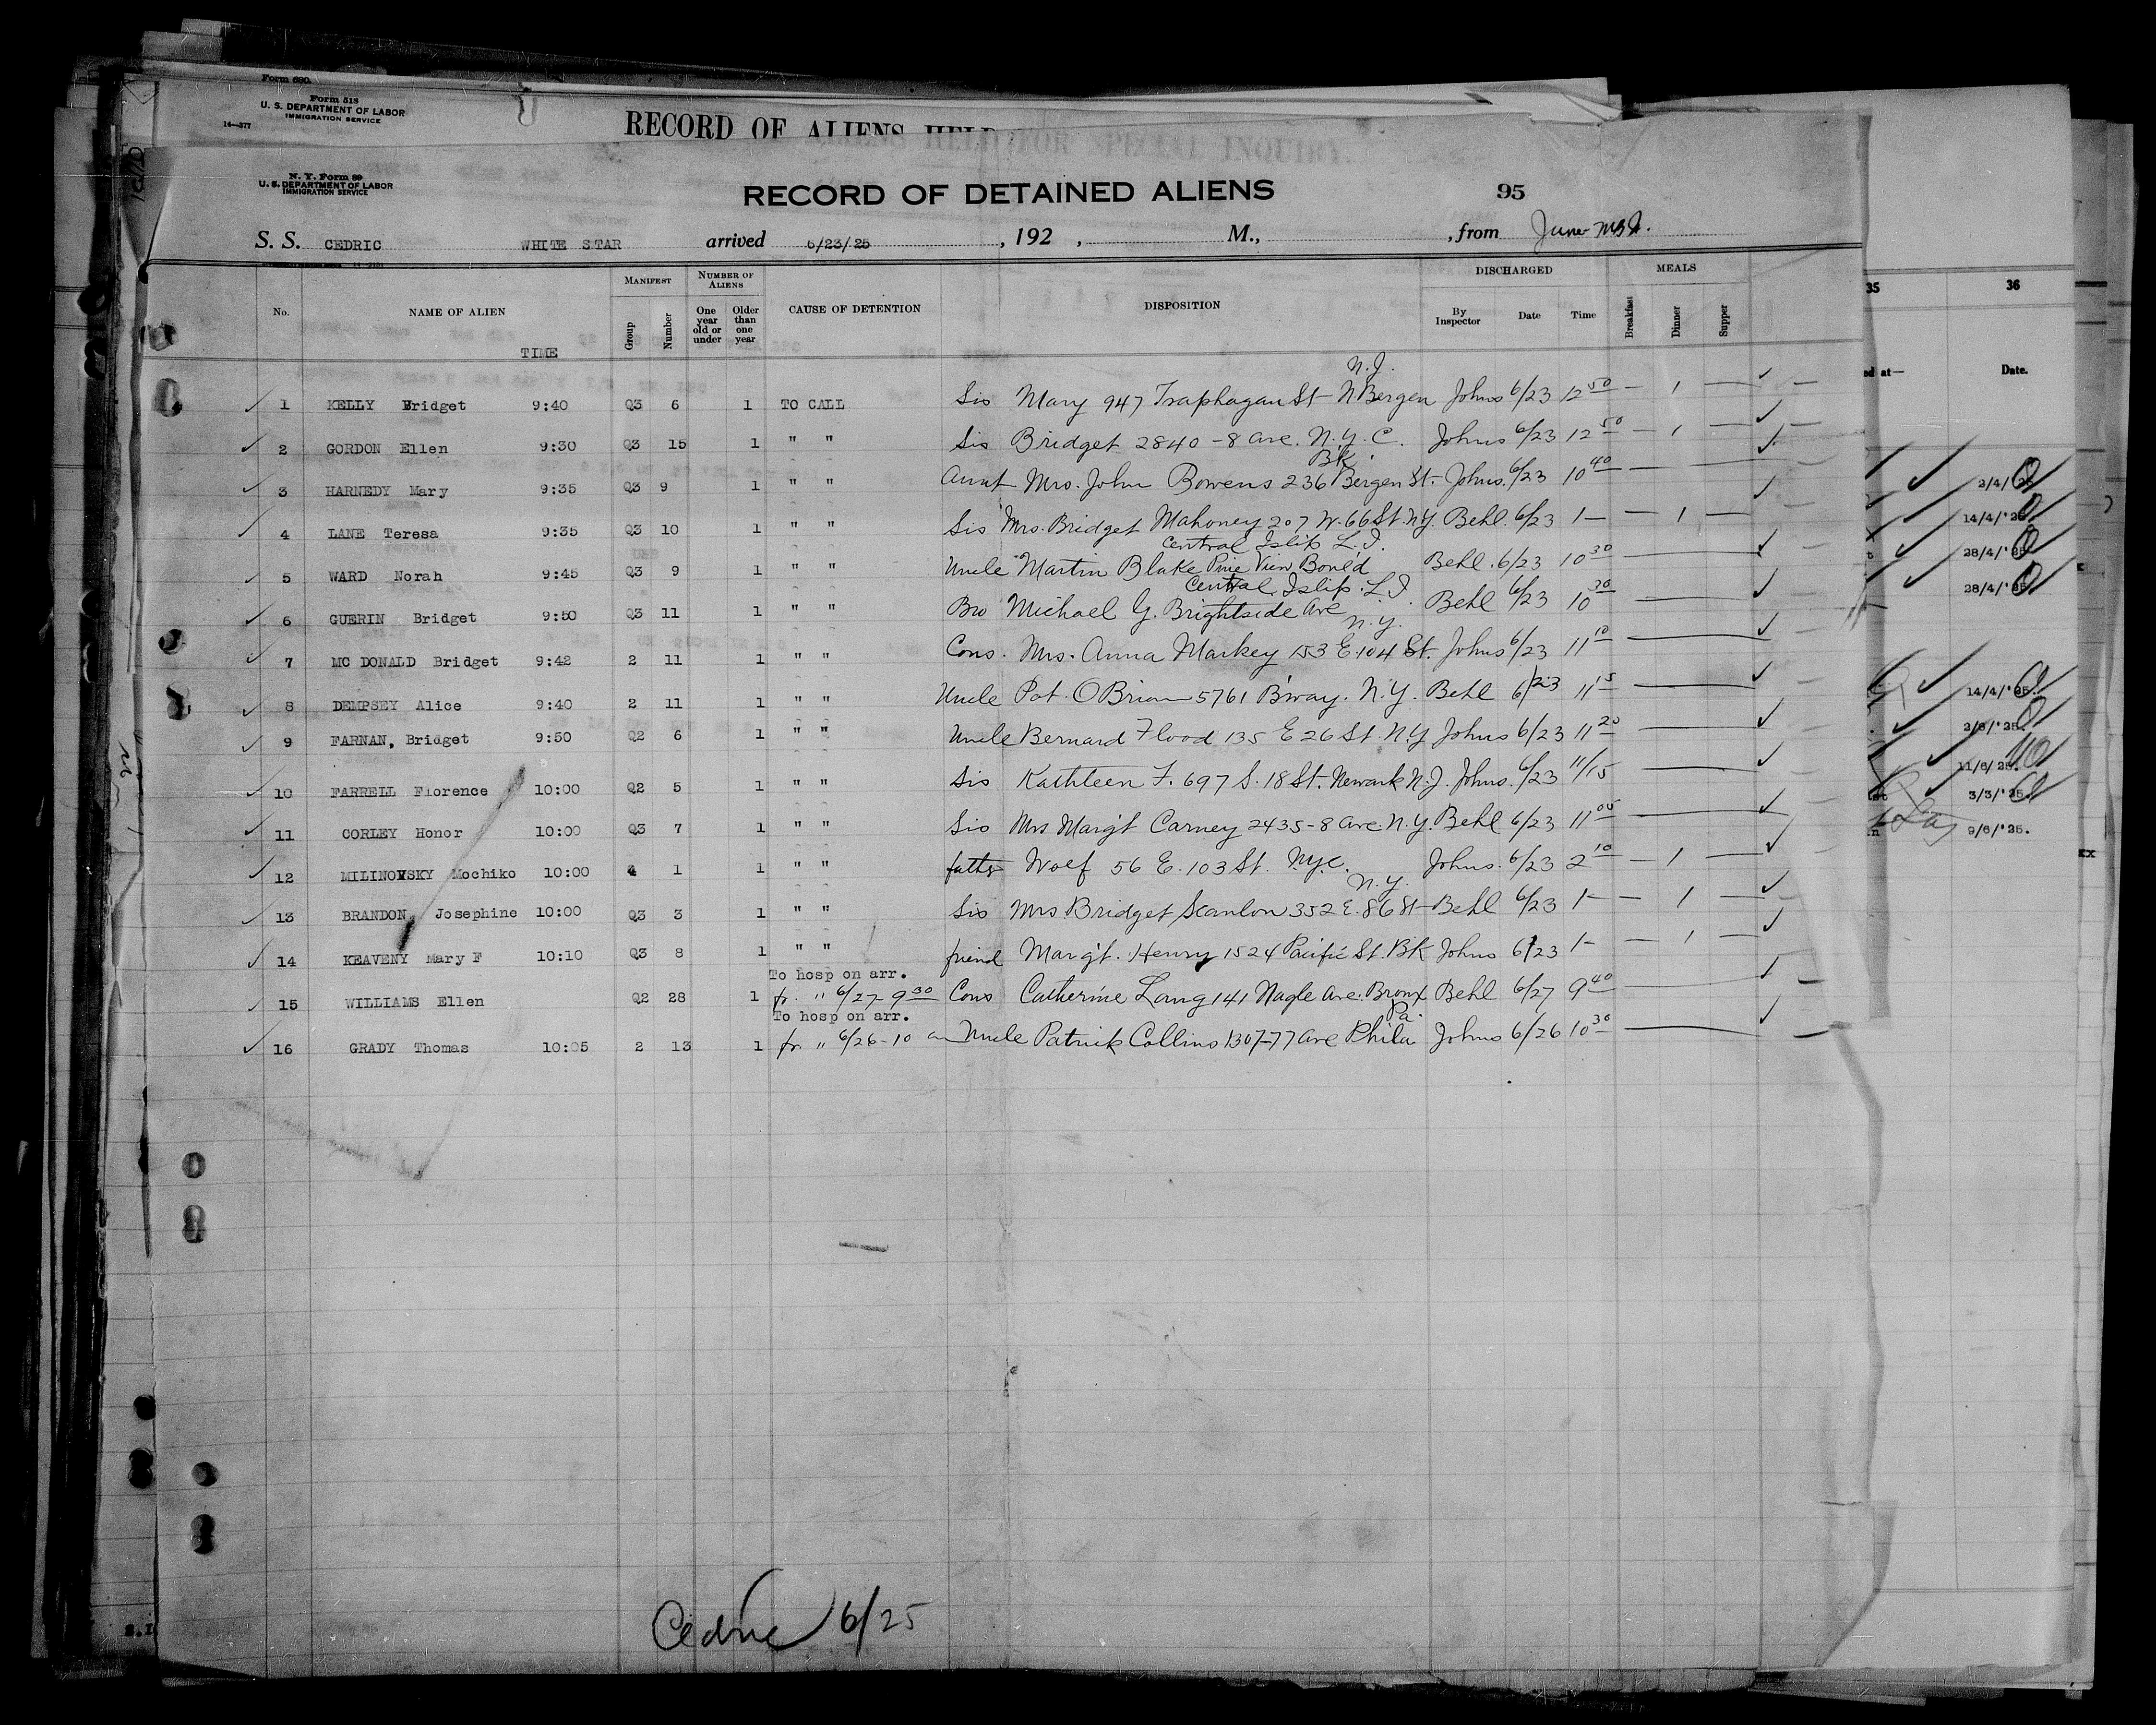 Form 660.
Form 518
U. S. DEPARTMENT OF LABOR
IMMIGRATION SERVICE
14—377
RECORD OF ALIENS HELD FOR SPECIAL INQUIRY.
N. Y. Form 89
U. S. DEPARTMENT OF LABOR
IMMIGRATION SERVICE
RECORD OF DETAINED ALIENS 95
S. S. CEDRIC WHITE STAR arrived 6/23/25 , 192 , M., , from
No. NAME OF ALIEN TIME MANIFEST Group Number NUMBER OF ALIENS One year old or under Older than one year CAUSE OF DETENTION DISPOSITION DISCHARGED By Inspector Date Time MEALS Breakfast Dinner Supper
35 36
ed at— Date.
N.J.
1 KELLY Bridget 9:40 Q3 6 1 TO CALL Sis Mary 947 Traphagan St N Bergen Johns 6/23 12 50 — 1 —
2 GORDON Ellen 9:30 Q3 15 1 " " Sis Bridget 2840-8 ave. N.Y.C. Johns 6/23 12 50 — 1 —
Bk.
3 HARNEDY Mary 9:35 Q3 9 1 " " Aunt Mrs. John Bowens 236 Bergen St. Johns. 6/23 10 40 —
4 LANE Teresa 9:35 Q3 10 1 " " Sis Mrs. Bridget Mahoney 207 W. 66 St. N.Y. Behl. 6/23 1— — 1 —
Central Islip L.I.
5 WARD Norah 9:45 Q3 9 1 " " Uncle Martin Blake Pine View Boul'd Behl. 6/23 10 30 —
Central Islip L.I
6 GUERIN Bridget 9:50 Q3 11 1 " " Bro Michael G. Brightside Ave Behl 6/23 10 30 —
N.Y.
7 MC DONALD Bridget 9:42 2 11 1 " " Cons. Mrs. Anna Markey 153 E. 104 St. Johns 6/23 11 10 —
8 DEMPSEY Alice 9:40 2 11 1 " " Uncle Pat. O Brian 5761 B'way. N.Y. Behl 6/23 11 15 —
9 FARNAN, Bridget 9:50 Q2 6 1 " " Uncle Bernard Flood 135 E 26 St. N.Y Johns 6/23 11 20 —
10 FARRELL Florence 10:00 Q2 5 1 " " Sis Kathleen F. 697 S. 18 St. Newark N.J. Johns. 6/23 11/15 —
11 CORLEY Honor 10:00 Q3 7 1 " " Sis Mrs Marg't Carney 2435-8 ave N.Y. Behl 6/23 11 05 —
12 MILINOVSKY Mochiko 10:00 4 1 1 " " father Wolf 56 E. 103 St. N.Y.C. Johns. 6/23 2 10 — 1 —
N.Y.
13 BRANDON, Josephine 10:00 Q3 3 1 " " Sis Mrs Bridget Scanlon 352 E. 86 St Behl 6/23 1— — 1 —
14 KEAVENY Mary F 10:10 Q3 8 1 " " friend Marg't. Henry 1524 Pacific St. BK Johns 6/23 1— — 1 —
To hosp on arr.
15 WILLIAMS Ellen Q2 28 1 fr. " 6/27 9 30 Cons Catherine Lang 141 Nagle Ave. Bronx Behl 6/27 9 40 —
To hosp on arr. Pa.
16 GRADY Thomas 10:05 2 13 1 fr. " 6/26-10 am Uncle Patrick Collins 1307-77 ave Phila Johns 6/26 10 30 —
14/4/'25
28/4/'25
28/4/'25
14/4/'25.
11/6/25.
3/3/'25.
9/6/'25.
xx
S.I
Cedric 6/25